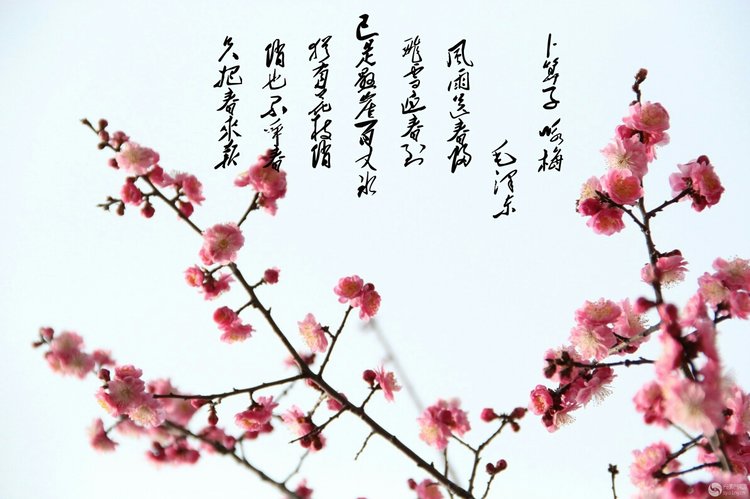 卜算子 咏梅
毛泽东
风雨送春归
飞雪迎春到
已是悬崖百丈冰
犹有花枝俏
俏也不争春
只把春来报